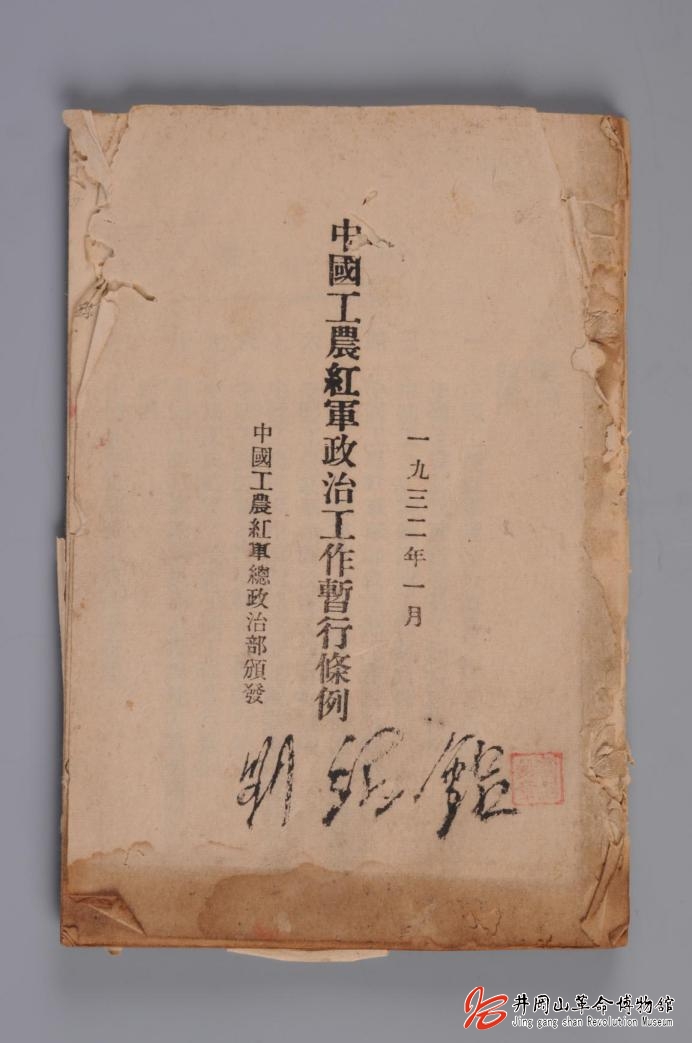 一九三二年一月
中國工農紅軍政治工作暫行條例
中國工農紅軍總政治部頒發
井岡山革命博物館
Jing gang shan Revolution Museum